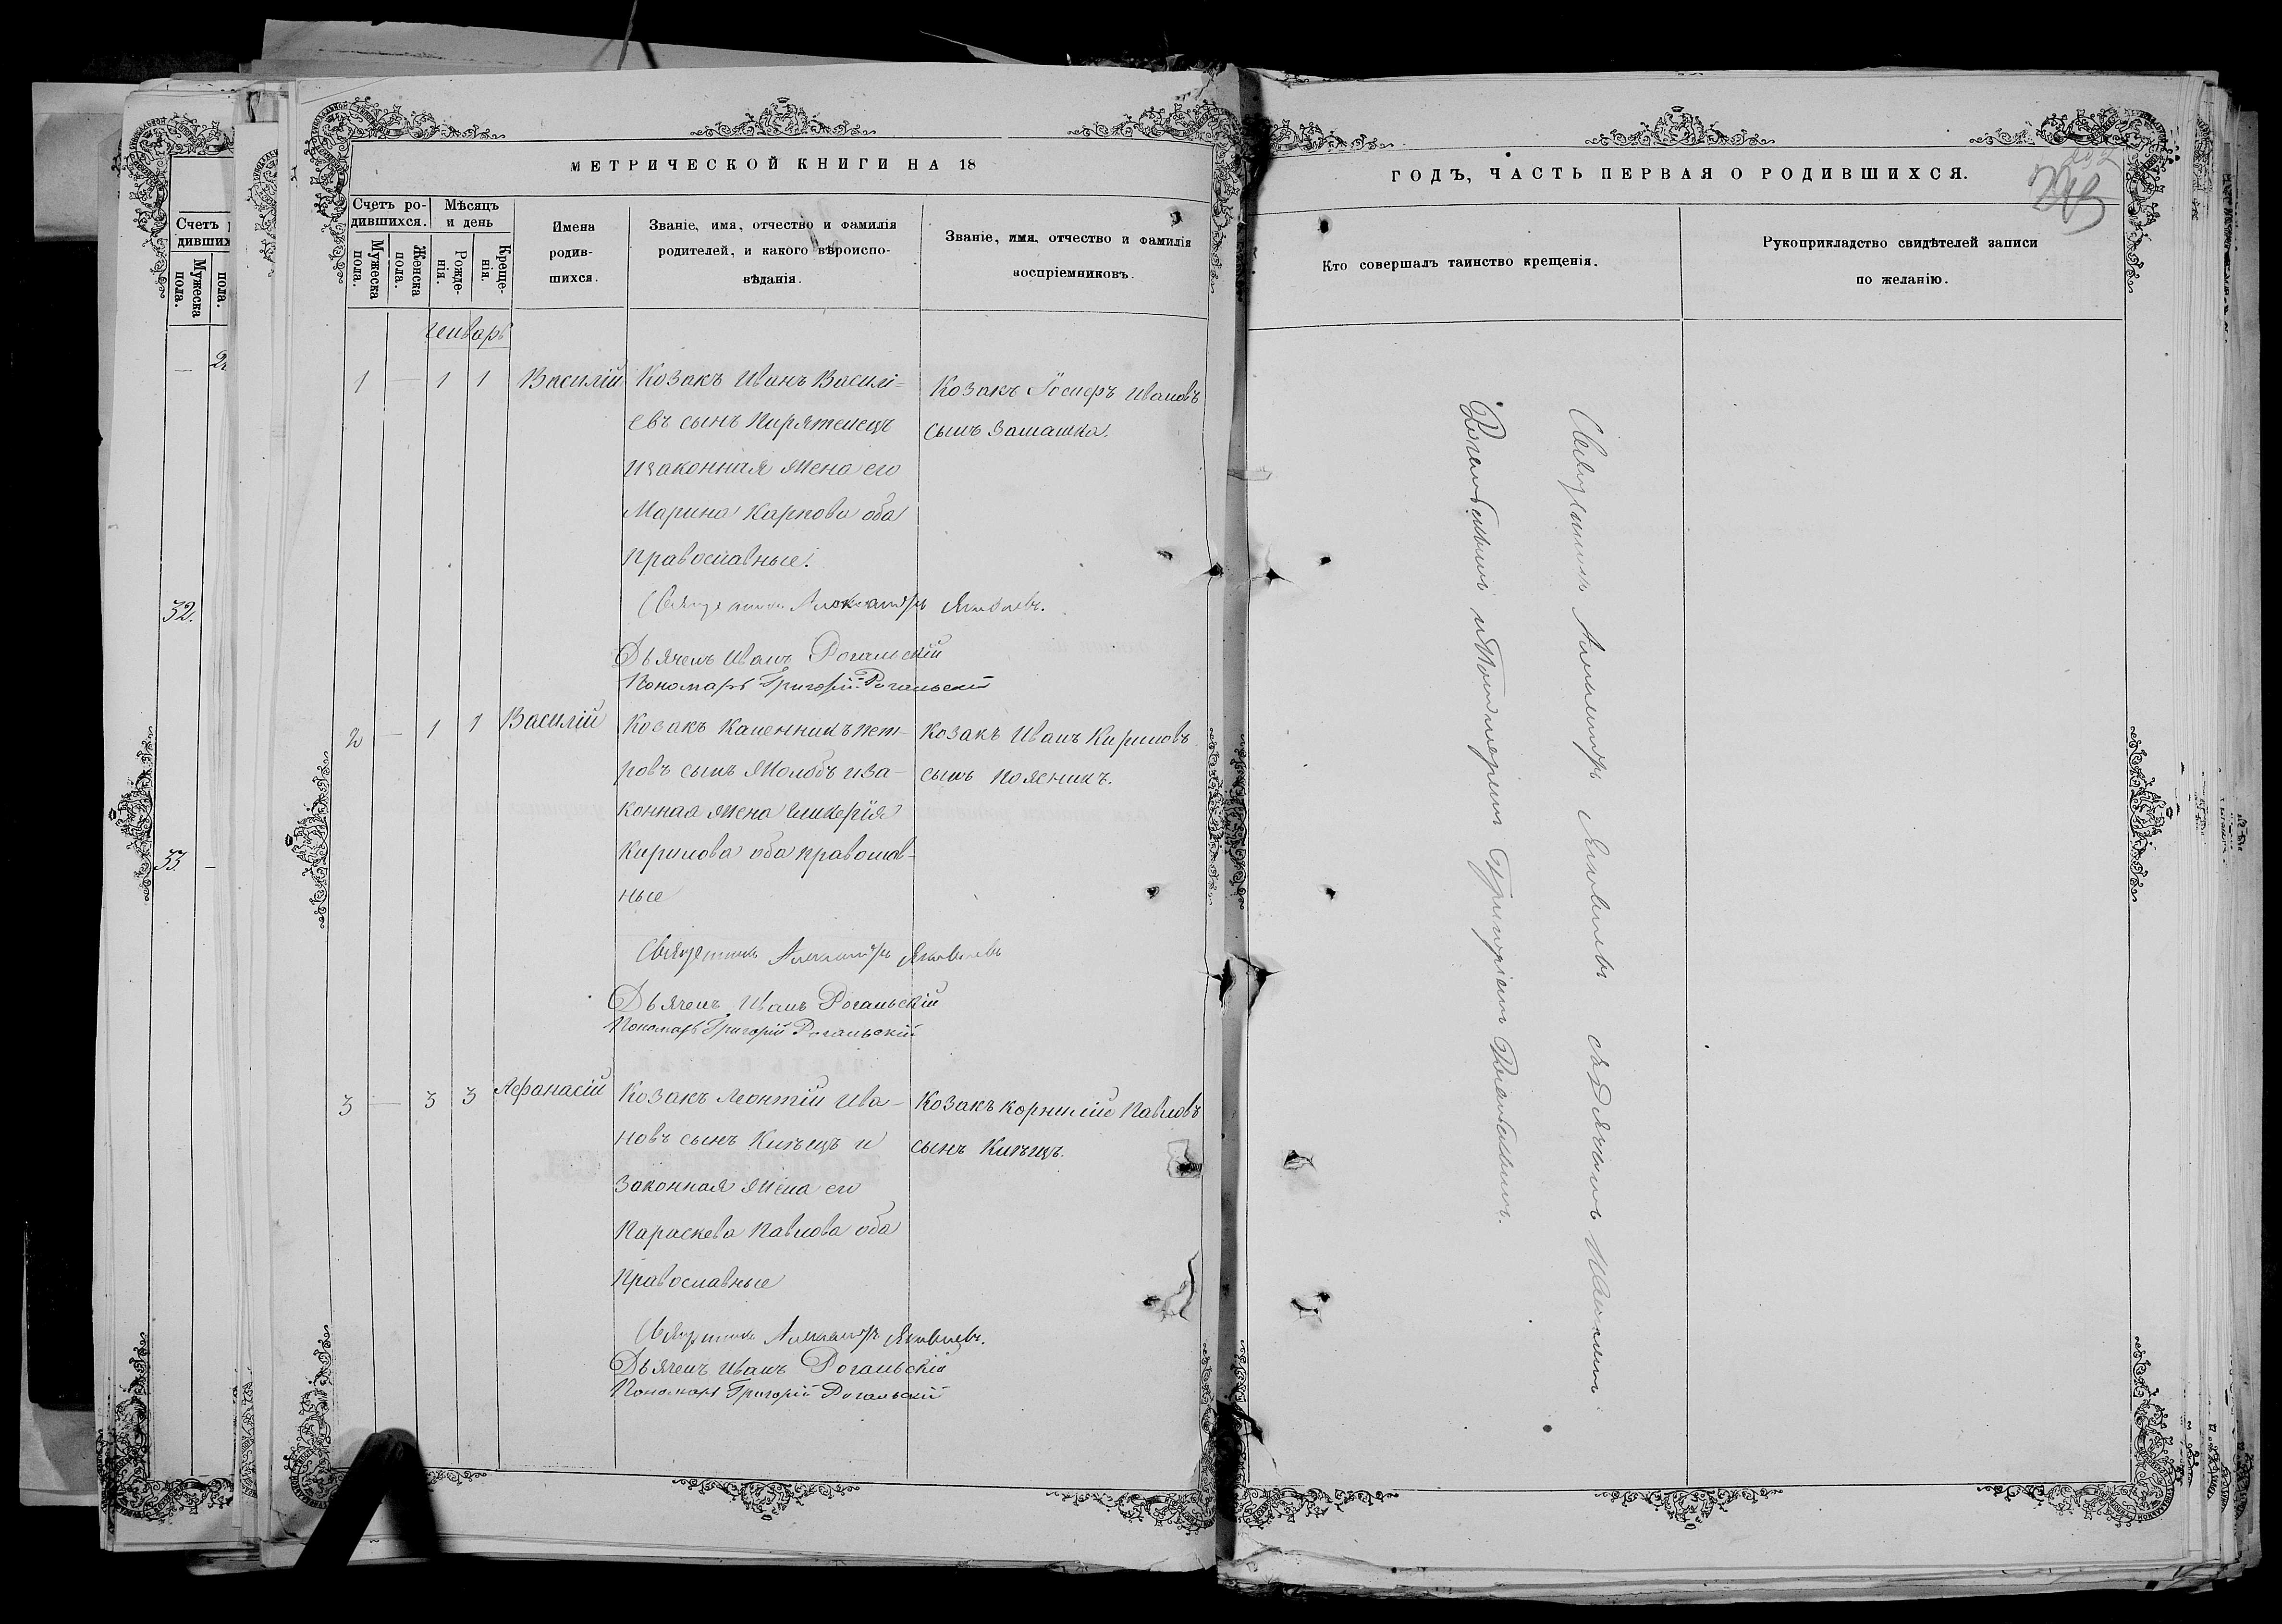 МЕТРИЧЕСКОЙ КНИГИ НА 18
ГОДЪ, ЧАСТЬ ПЕРВАЯ О РОДИВШИХСЯ.
Счетъ ро-
дившихся.
Мужеска
пола.
Женска
пола.
Мѣсяцъ
и день
Рожде-
нія.
Креще-
нія.
Имена
родив-
шихся.
Званіе, имя, отчество и фамилія
родителей, и какого вѣроиспо-
вѣданія.
Званіе, имя, отчество и фамилія
воспріемниковъ.
Кто совершалъ таинство крещенія.
Рукоприкладство свидѣтелей записи
по желанію.
Генварь
1 — 1 1 Василій
Козакъ Иванъ Василі-
евъ сынъ Пирятенецъ
и законная жена его
Марина Карпова оба
православные.
Козакъ Іосифъ Ивановъ
сынъ
Священникъ Александръ Яковлевъ.
Дьячекъ Иванъ Рогальскій
Пономарь Григорій Рогальскій
2 — 1 1 Василій
Козакъ Каленникъ Пет-
ровъ сынъ и за-
конная жена Гликерія
Кирилова оба православ-
ные
Козакъ Иванъ Кириловъ
сынъ Поясникъ.
Священникъ Александръ Яковлевъ
Дьячекъ Иванъ Рогальскій
Пономарь Григорій Рогальскій
3 — 3 3 Афанасій
Козакъ Леонтій Ива-
новъ сынъ и
законная жена его
Параскева Павлова оба
православные
Козакъ Корнилій Павловъ
сынъ
Священникъ Александръ Яковлевъ.
Дьячекъ Иванъ Рогальскій
Пономарь Григорій Рогальскій
Священникъ Александръ Яковлевъ съ Дьячкомъ Иваномъ
Рогальскимъ и Пономаремъ Григоріемъ Рогальскимъ.
Счетъ
дивших
Мужеска
пола.
пола.
32.
33.